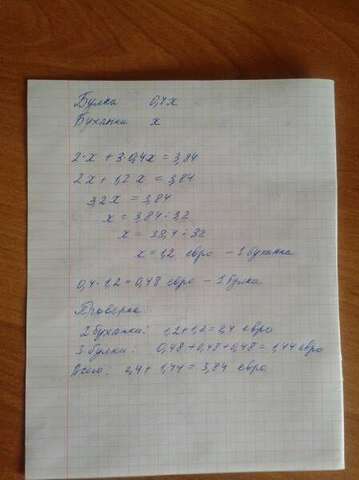 Булка 0,4x
Буханка x
2·x + 3·0,4x = 3,84
2x + 1,2x = 3,84
3,2x = 3,84
x = 3,84 : 3,2
x = 38,4 : 32
x = 1,2 евро - 1 буханка
0,4·1,2 = 0,48 евро - 1 булка
Проверка:
2 буханки: 1,2+1,2 = 2,4 евро
3 булки: 0,48+0,48+0,48 = 1,44 евро
Всего: 2,4 + 1,44 = 3,84 евро